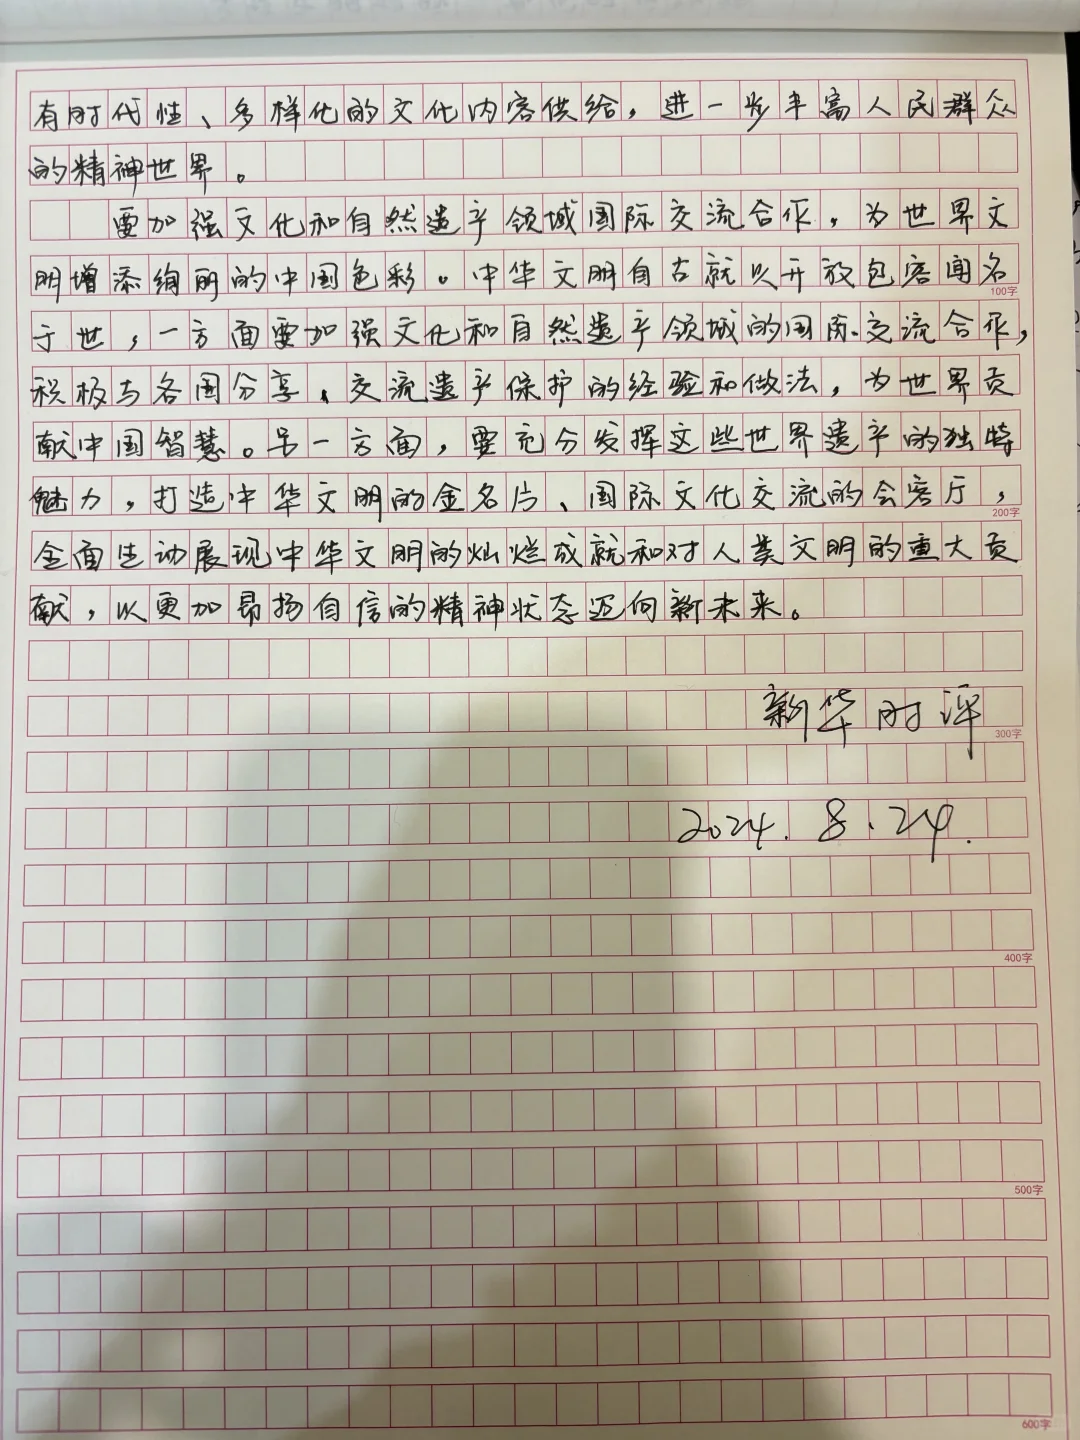 有时代性、多样化的文化内容供给，进一步丰富人民群众
的精神世界。
要加强文化和自然遗产领域国际交流合作，为世界文
明增添绚丽的中国色彩。中华文明自古就以开放包容闻名
100字
于世，一方面要加强文化和自然遗产领域的国际交流合作，
积极与各国分享、交流遗产保护的经验和做法，为世界贡
献中国智慧。另一方面，要充分发挥这些世界遗产的独特
魅力，打造中华文明的金名片、国际文化交流的会客厅，
200字
全面生动展现中华文明的灿烂成就和对人类文明的重大贡
献，以更加昂扬自信的精神状态迈向新未来。
新华时评
300字
2024.8.24.
400字
500字
600字